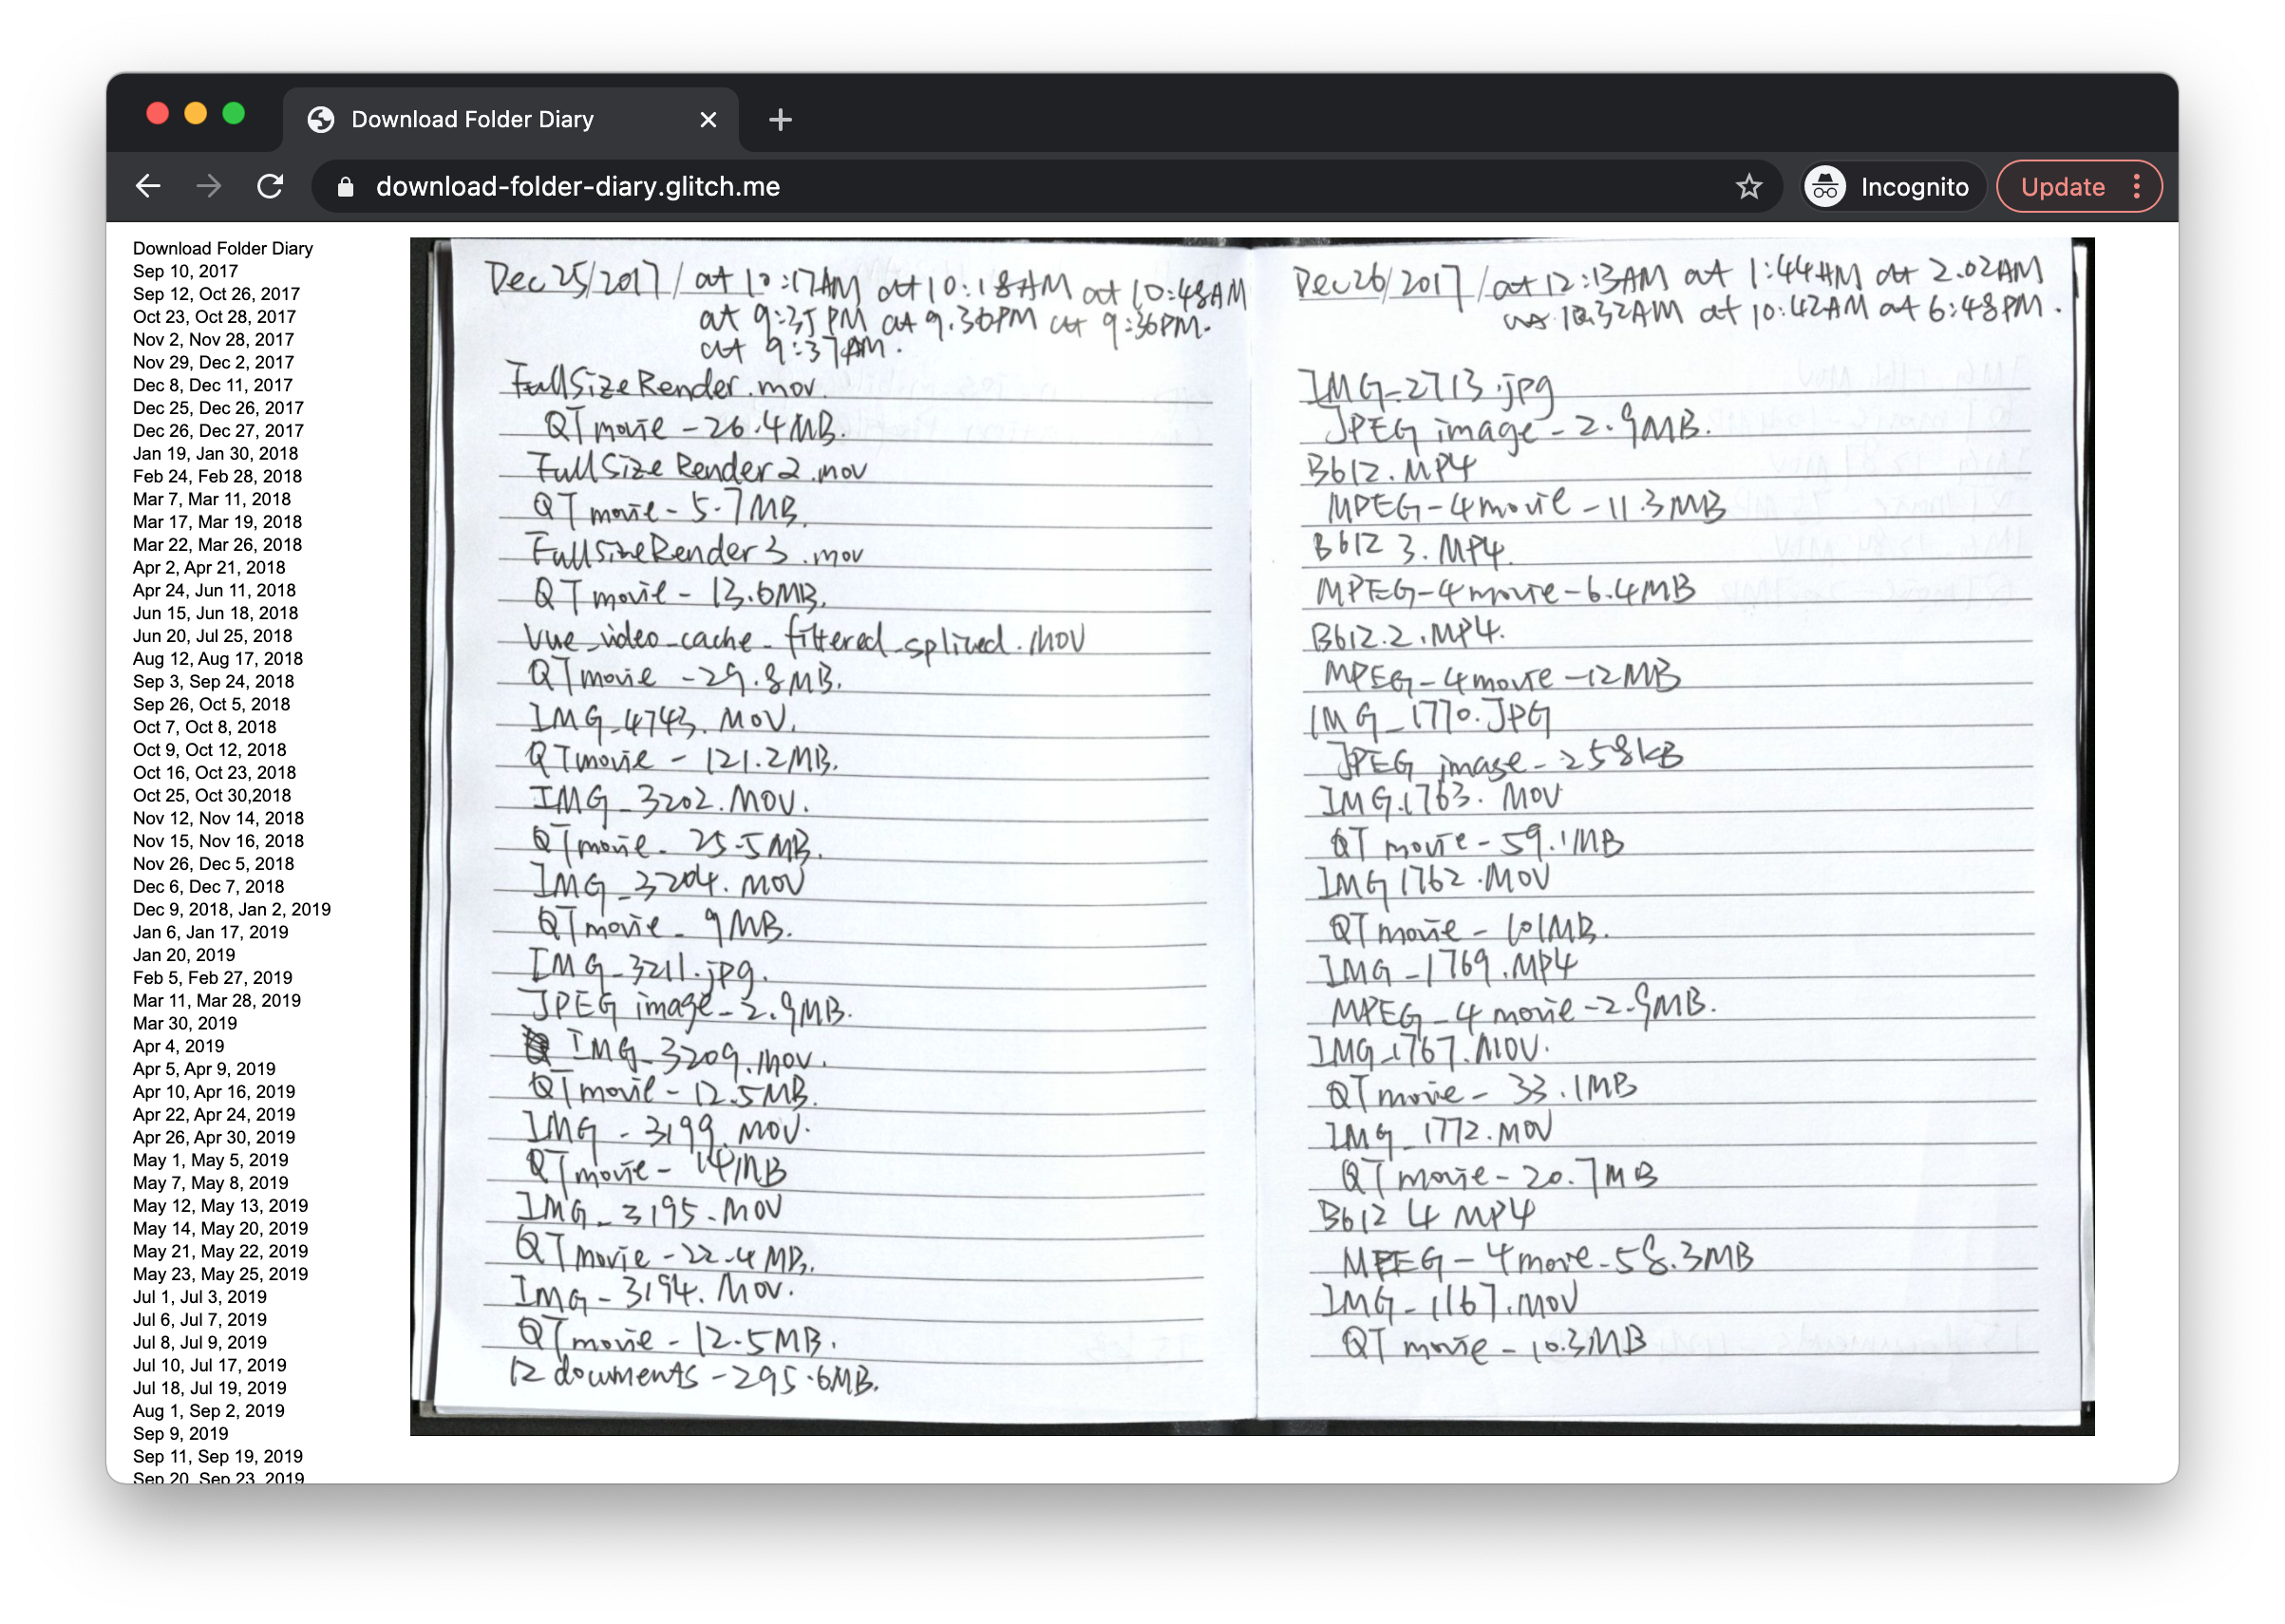 Download Folder Diary
download-folder-diary.glitch.me
Incognito
Update
Download Folder Diary
Sep 10, 2017
Sep 12, Oct 26, 2017
Oct 23, Oct 28, 2017
Nov 2, Nov 28, 2017
Nov 29, Dec 2, 2017
Dec 8, Dec 11, 2017
Dec 25, Dec 26, 2017
Dec 26, Dec 27, 2017
Jan 19, Jan 30, 2018
Feb 24, Feb 28, 2018
Mar 7, Mar 11, 2018
Mar 17, Mar 19, 2018
Mar 22, Mar 26, 2018
Apr 2, Apr 21, 2018
Apr 24, Jun 11, 2018
Jun 15, Jun 18, 2018
Jun 20, Jul 25, 2018
Aug 12, Aug 17, 2018
Sep 3, Sep 24, 2018
Sep 26, Oct 5, 2018
Oct 7, Oct 8, 2018
Oct 9, Oct 12, 2018
Oct 16, Oct 23, 2018
Oct 25, Oct 30,2018
Nov 12, Nov 14, 2018
Nov 15, Nov 16, 2018
Nov 26, Dec 5, 2018
Dec 6, Dec 7, 2018
Dec 9, 2018, Jan 2, 2019
Jan 6, Jan 17, 2019
Jan 20, 2019
Feb 5, Feb 27, 2019
Mar 11, Mar 28, 2019
Mar 30, 2019
Apr 4, 2019
Apr 5, Apr 9, 2019
Apr 10, Apr 16, 2019
Apr 22, Apr 24, 2019
Apr 26, Apr 30, 2019
May 1, May 5, 2019
May 7, May 8, 2019
May 12, May 13, 2019
May 14, May 20, 2019
May 21, May 22, 2019
May 23, May 25, 2019
Jul 1, Jul 3, 2019
Jul 6, Jul 7, 2019
Jul 8, Jul 9, 2019
Jul 10, Jul 17, 2019
Jul 18, Jul 19, 2019
Aug 1, Sep 2, 2019
Sep 9, 2019
Sep 11, Sep 19, 2019
Sep 20, Sep 23, 2019
Dec 25/2017/at 10:17AM at 10:18AM at 10:48AM
at 9:35PM at 9.36PM at 9:36PM.
at 9:37AM.
FullSizeRender.mov.
QTmovie - 26.4MB.
FullSizeRender2.mov
QTmovie - 5.7MB.
FullSizeRender3.mov
QTmovie - 13.6MB.
vue_video_cache_filtered_spliced.mov
QTmovie - 29.8MB.
IMG_4743.MOV.
QTmovie - 121.2MB.
IMG_3202.MOV.
QTmovie - 25.5MB.
IMG_3204.MOV
QTmovie - 9MB.
IMG_3211.jpg.
JPEG image - 2.9MB.
IMG_3209.mov.
QTmovie - 12.5MB.
IMG_3199.MOV.
QTmovie - 14MB
IMG_3195.MOV
QTmovie - 22.4MB.
IMG_3194.MOV.
QTmovie - 12.5MB.
12 documents - 295.6MB.
Dec 26/2017/at 12:13AM at 1:44AM at 2.02AM
at 10:42AM at 6:48PM.
IMG_2713.jpg
JPEG image - 2.9MB.
B612.MP4
MPEG-4 movie - 11.3MB
B612 3.MP4.
MPEG-4 movie - 6.4MB
B612.2.MP4.
MPEG-4 movie - 12MB
IMG_1770.JPG
JPEG image - 258KB
IMG_1763.MOV
QT movie - 59.1MB
IMG 1762.MOV
QTmovie - 101MB.
IMG_1769.MP4
MPEG-4 movie - 2.9MB.
IMG_1767.MOV.
QTmovie - 33.1MB
IMG_1772.MOV
QTmovie - 20.7MB
B612 4 MP4
MPEG-4 move - 58.3MB
IMG_1167.MOV
QT movie - 10.3MB